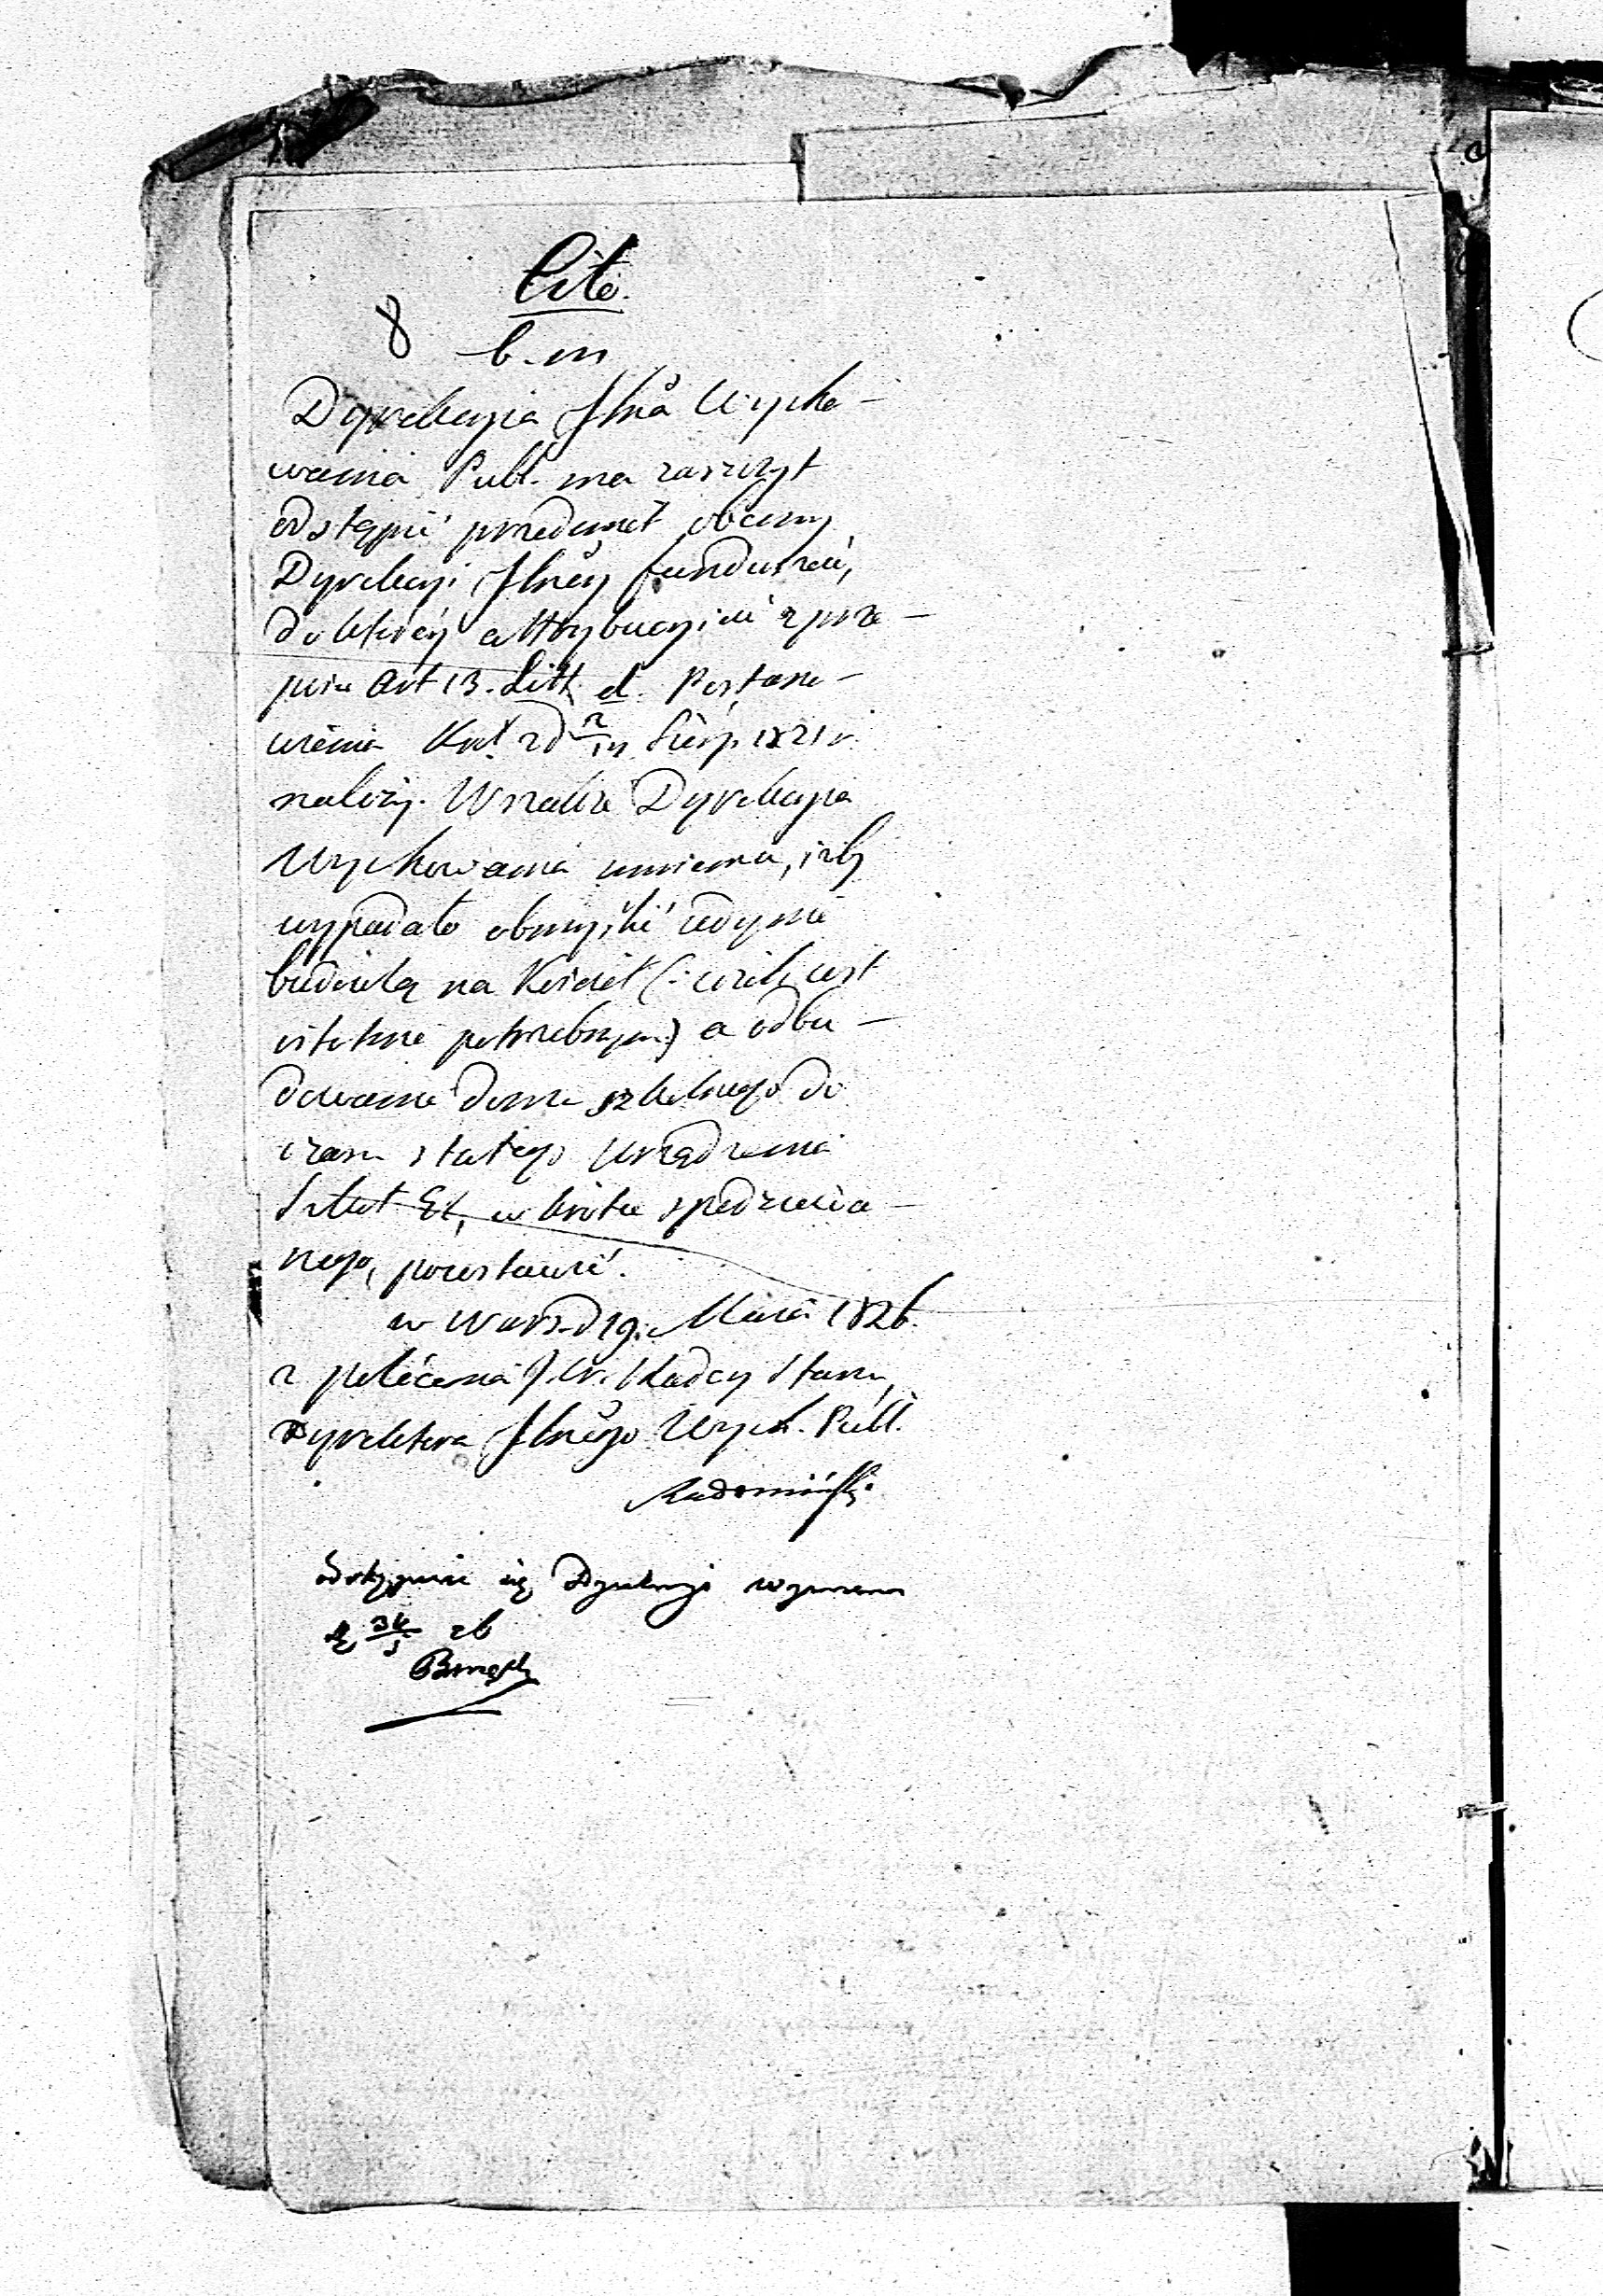 Cito.
8 b. m
Dyrekcyia Jlna Wycho-
wania Publ. ma zaszczyt
odstąpić przedmiot obecny
Dyrekcyi Jlnéy funduszów,
do któréy attrybucyi z prze-
pisu Art 13. Litt. d. Postano-
wienia Król. z d Sierp. 1821 r.
należy. Wszakże Dyrekcyia
Wychowania mniema, iżby
wypadało obmyślić iedynie
budowlą na Kościół (: ieżeli iest
istotnie potrzebnym:) a odbu-
dowanie domu szkolnego do
czasu stałego urządzenia
Szkół El, w krótce spodziewa-
nego, pozostawić.
w Warsz. d 19. Maia 1826.
z polécenia J. W. Radcy Stanu,
Dyrektora Jlnégo Wych. Publ.
Radomiński.
odstąpienie się Dyrekcyi